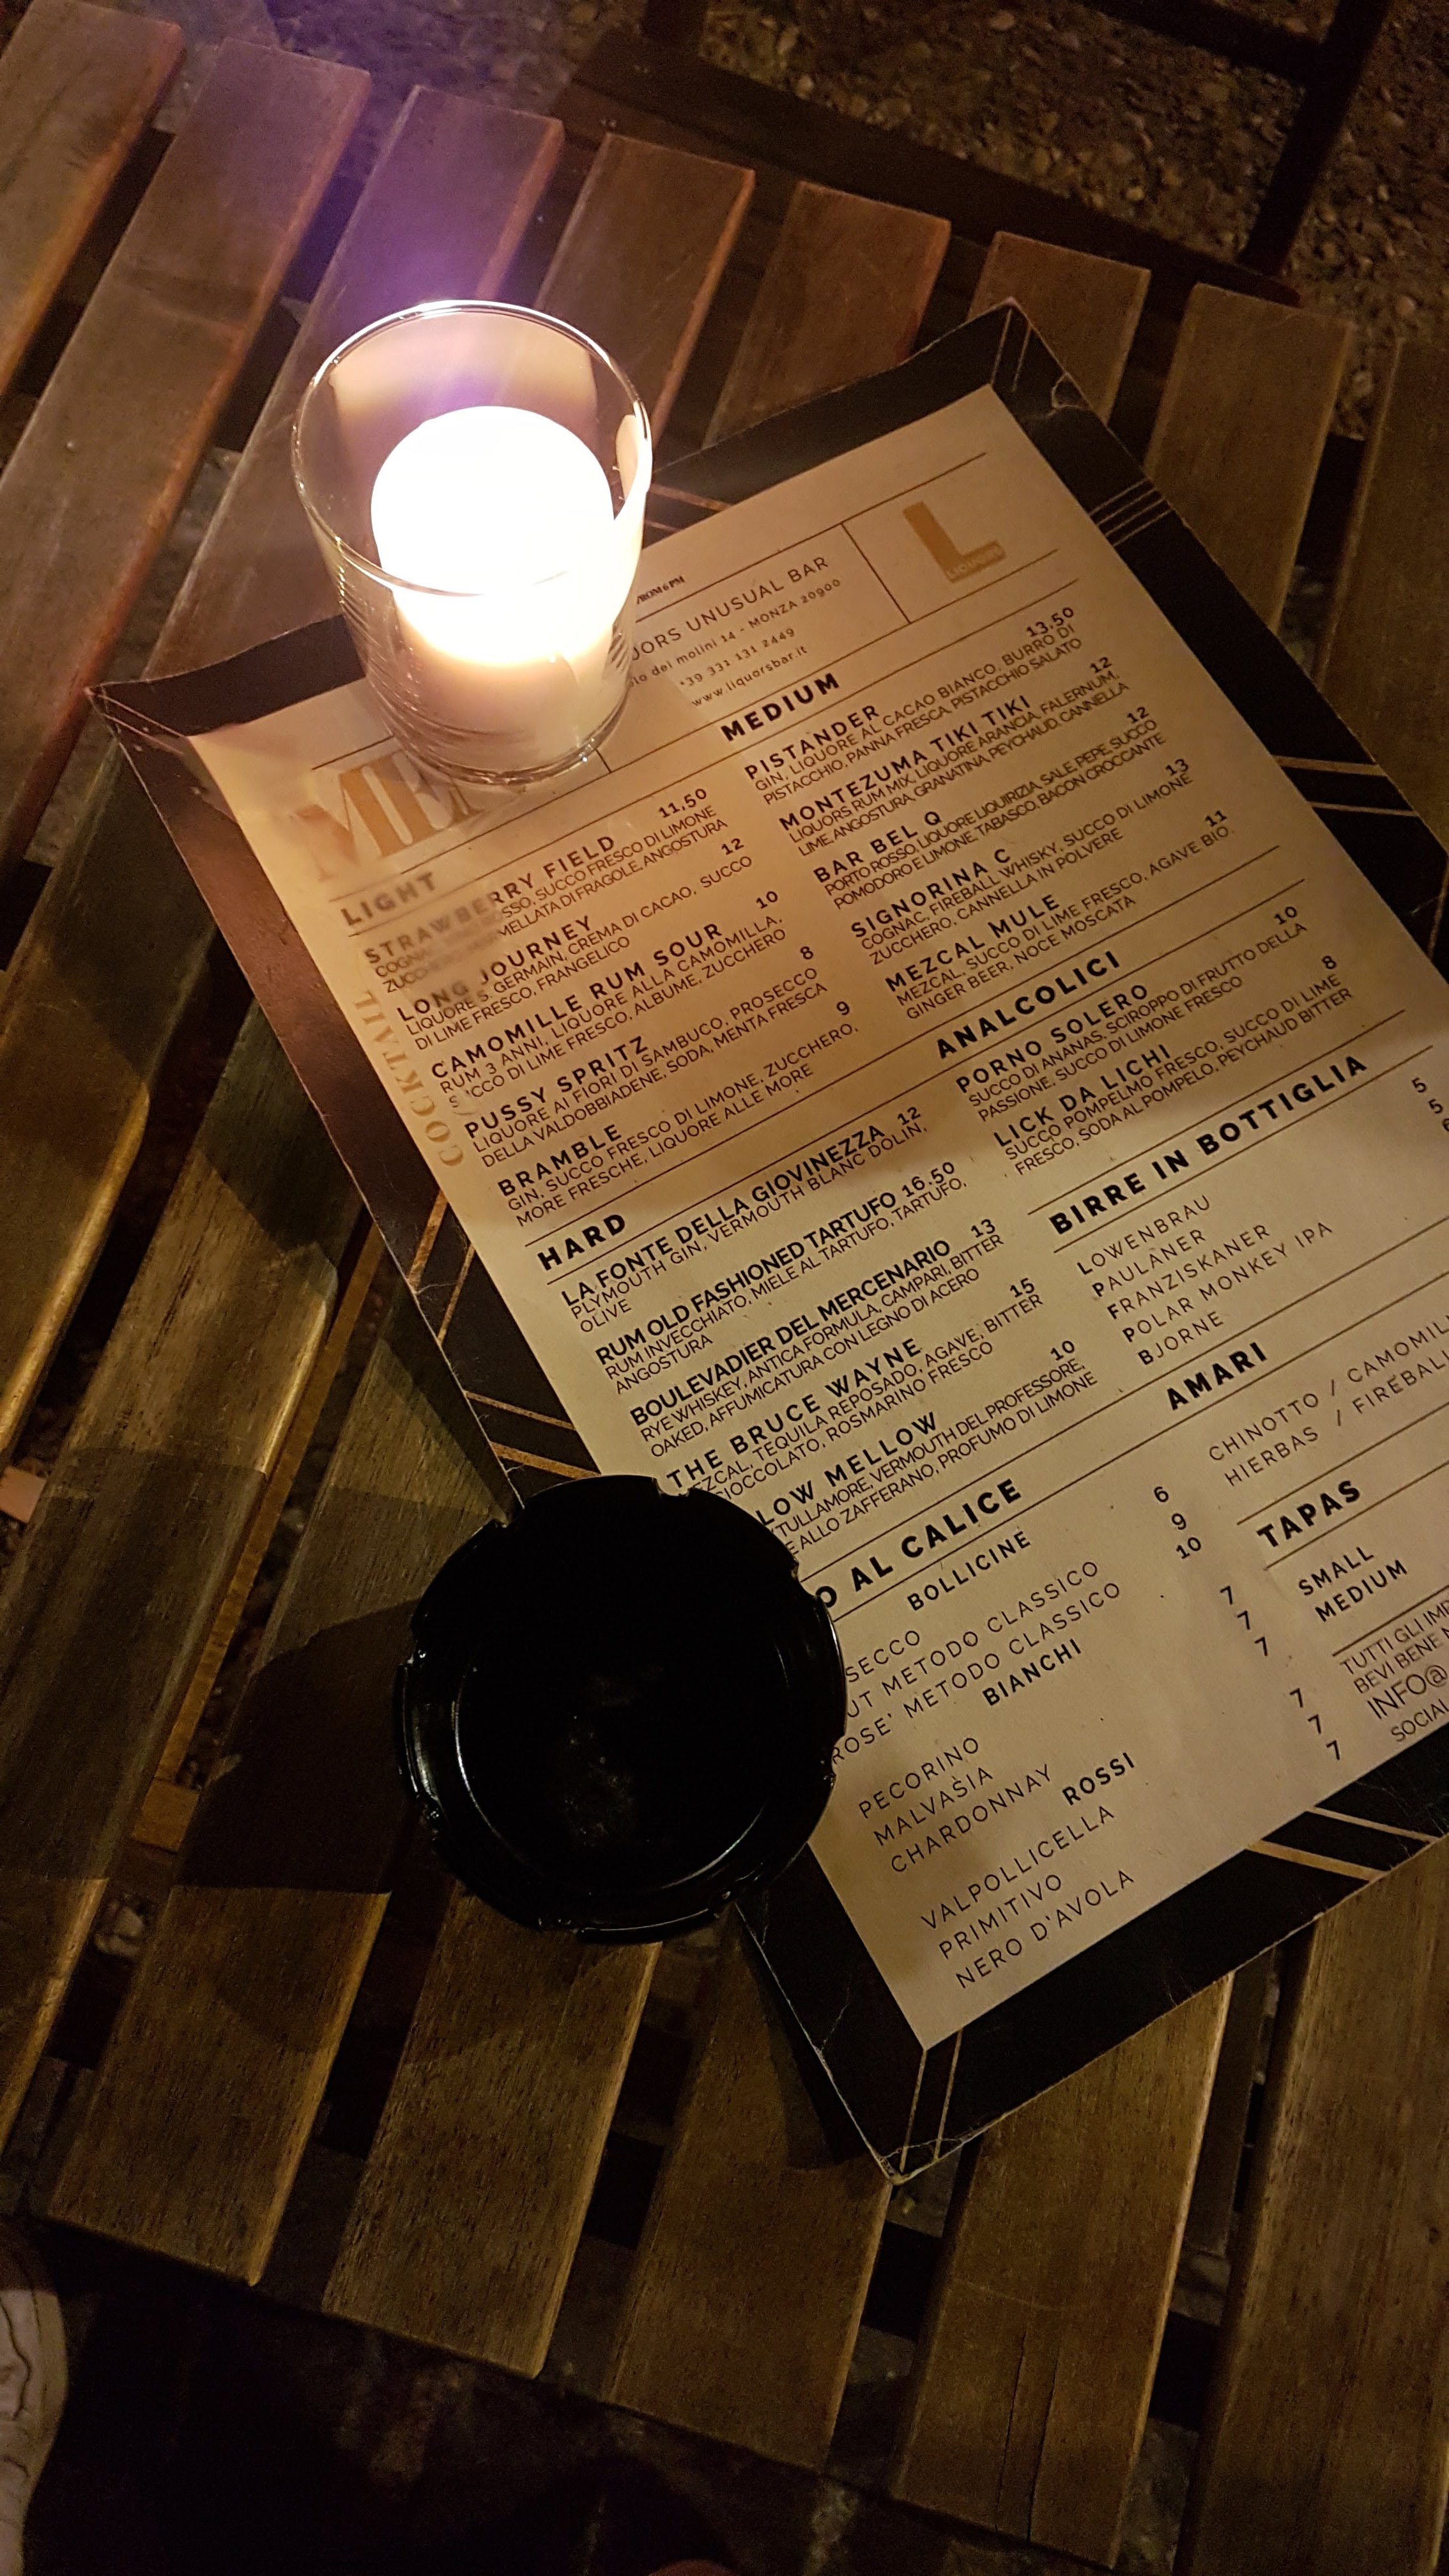 FROM 6 PM
UNUSUAL BAR
dei molini 14 - MONZA 20900
39 331 131 2449
www.liquorsbar.it
L
LIQUORS
COCKTAIL
LIGHT
STRAWBERRY FIELD 11,50
SUCCO FRESCO DI LIMONE
DI FRAGOLE, ANGOSTURA
LONG JOURNEY 12
LIQUORE S. GERMAIN, CREMA DI CACAO, SUCCO
DI LIME FRESCO, FRANGELICO
CAMOMILLE RUM SOUR 10
RUM 3 ANNI, LIQUORE ALLA CAMOMILLA,
SUCCO DI LIME FRESCO, ALBUME, ZUCCHERO
PUSSY SPRITZ 8
LIQUORE AI FIORI DI SAMBUCO, PROSECCO
DELLA VALDOBBIADENE, SODA, MENTA FRESCA
BRAMBLE 9
GIN, SUCCO FRESCO DI LIMONE, ZUCCHERO,
MORE FRESCHE, LIQUORE ALLE MORE
HARD
LA FONTE DELLA GIOVINEZZA 12
PLYMOUTH GIN, VERMOUTH BLANC DOLIN,
OLIVE
RUM OLD FASHIONED TARTUFO 16.50
RUM INVECCHIATO, MIELE AL TARTUFO, TARTUFO,
ANGOSTURA
BOULEVADIER DEL MERCENARIO 13
RYE WHISKEY, ANTICA FORMULA, CAMPARI, BITTER
OAKED, AFFUMICATURA CON LEGNO DI ACERO
THE BRUCE WAYNE 15
MEZCAL, TEQUILA REPOSADO, AGAVE, BITTER
CIOCCOLATO, ROSMARINO FRESCO
MELLOW 10
TULLAMORE, VERMOUTH DEL PROFESSORE,
ALLO ZAFFERANO, PROFUMO DI LIMONE
MEDIUM
PISTANDER 13,50
GIN, LIQUORE AL CACAO BIANCO, BURRO DI
PISTACCHIO, PANNA FRESCA, PISTACCHIO SALATO
MONTEZUMA TIKI TIKI 12
LIQUORS RUM MIX, LIQUORE ARANCIA, FALERNUM,
LIME, ANGOSTURA, GRANATINA, PEYCHAUD, CANNELLA
BAR BEL Q 12
PORTO ROSSO, LIQUORE LIQUIRIZIA, SALE, PEPE, SUCCO
POMODORO E LIMONE, TABASCO, BACON CROCCANTE
SIGNORINA C 13
COGNAC, FIREBALL WHISKY, SUCCO DI LIMONE
ZUCCHERO, CANNELLA IN POLVERE
MEZCAL MULE 11
MEZCAL, SUCCO DI LIME FRESCO, AGAVE BIO,
GINGER BEER, NOCE MOSCATA
ANALCOLICI
PORNO SOLERO 10
SUCCO DI ANANAS, SCIROPPO DI FRUTTO DELLA
PASSIONE, SUCCO DI LIMONE FRESCO
LICK DA LICHI 8
SUCCO POMPELMO FRESCO, SUCCO DI LIME
FRESCO, SODA AL POMPELO, PEYCHAUD BITTER
BIRRE IN BOTTIGLIA
LOWENBRAU 5
PAULANER 5
FRANZISKANER
POLAR MONKEY IPA
BJORNE
AMARI
CHINOTTO /
HIERBAS /
TAPAS
SMALL
MEDIUM
TUTTI GLI
BEVI BENE
INFO@
SOCIAL
AL CALICE
BOLLICINE
6
METODO CLASSICO 9
ROSE' METODO CLASSICO 10
BIANCHI
PECORINO 7
MALVASIA 7
CHARDONNAY 7
ROSSI
VALPOLLICELLA 7
PRIMITIVO 7
NERO D'AVOLA 7